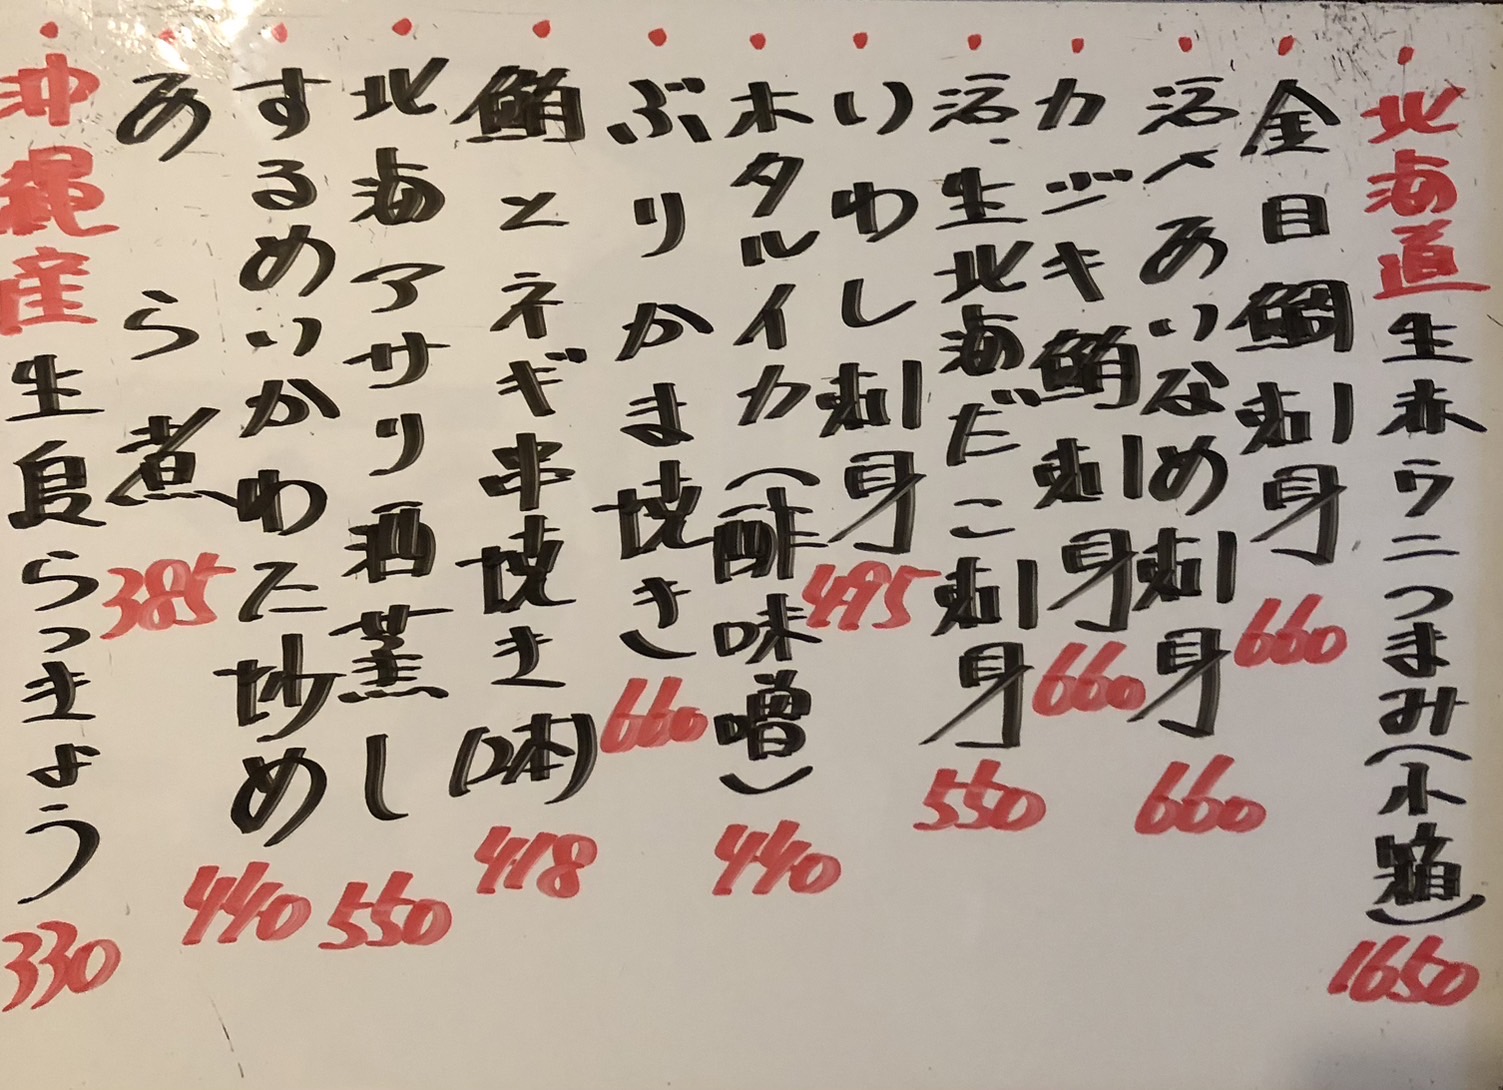 北海道生赤ウニつまみ(小箱)1650
金目鯛刺身660
活〆あいなめ刺身660
カジキ鮪刺身660
活・生北海だこ刺身550
いわし刺身495
ホタルイカ(酢味噌)440
ぶりかま焼き660
鮪とネギ串焼き(2本)418
北海アサリ酒蒸し550
するめいかわた炒め440
あら煮385
沖縄産生島らっきょう330